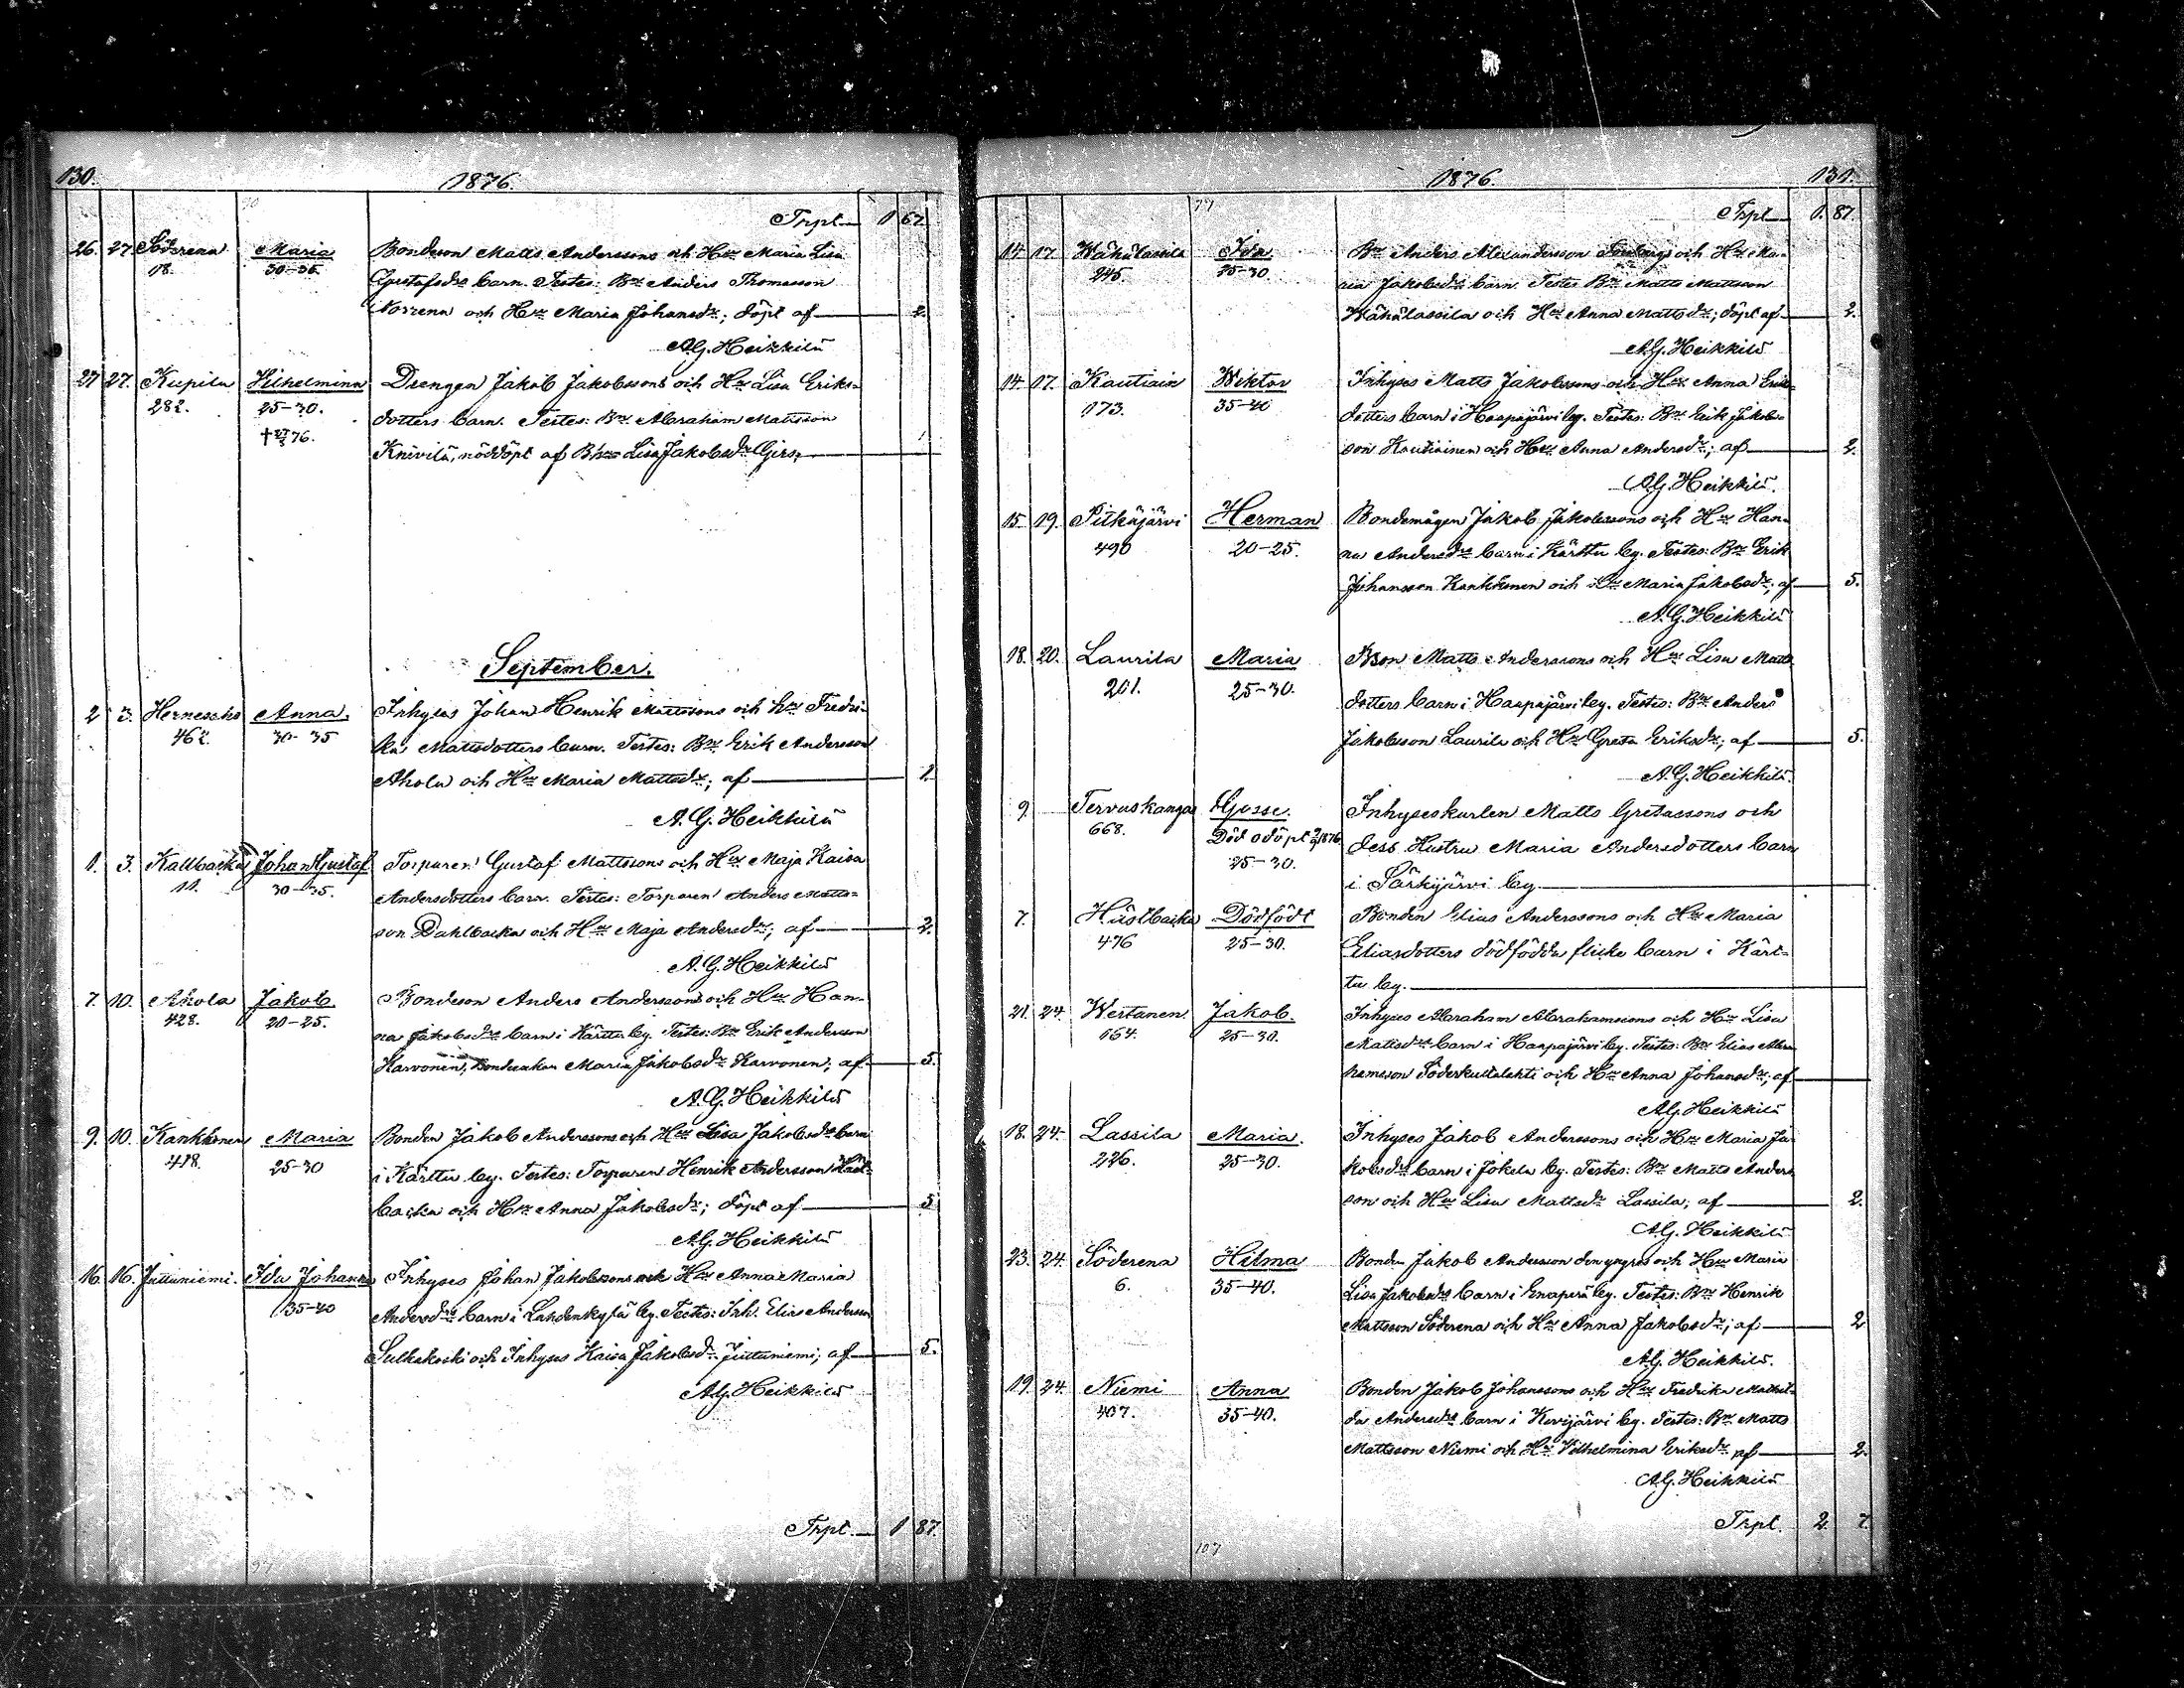 130.
1876.
Trpt 1 67
26. 27. Söderena Maria Bondeson Matts Anderssons och Hru Maria Lisa
18. 30-35. Gustafsdrs barn. Testes: Bn Anders Thomasson
Norrena och Hru Maria Johansdr; döpt af 2.
A.G. Heikkilä
27 27. Kupila Wilhelmina Drengen Jakob Jakobssons och Hru Lisa Eriks-
282. 25-30. dotters barn. Testes: Bn Abraham Mattsson
† 27/8 76. Knivilä, nöddöpt af Lisa Jakobsdr
September.
2 3. Hernesaho Anna. Inhyses Johan Henrik Mattssons och hru Fredri-
462. 30-35 ka Mattsdotters barn. Testes: Bn Erik Andersson
Ahola och Hru Maria Mattsdr; af 1.
A. G. Heikkilä
1. 3. Kallbacka Johan Gustaf Torparen Gustaf Mattssons och Hru Maja Kaisa
11. 30-35. Andersdotters barn. Testes: Torparen Anders Matts-
son Dahlbacka och Hru Maja Andersdr; af 2.
A. G. Heikkilä
7. 10. Ahola Jakob. Bondeson Anders Anderssons och Hru Han-
428. 20-25. na Jakobsdrs barn i Kärttu by. Testes: Bn Erik Andersson
Karvonen, Maria Jakobsdr Karvonen; af 5.
A. G. Heikkilä
9. 10. Kankkonen Maria Bonden Jakob Anderssons och Hru Lisa Jakobsdrs barn
418. 25-30 i Kärttu by. Testes: Torparen Henrik Andersson Häst-
backa och Hru Anna Jakobsdr; döpt af 5
A.G. Heikkilä
16. 16. Juttuniemi. Ida Johanna Inhyses Johan Jakobssons och Hru Anna Maria
35-40 Andersdrs barn i by. Testes: Inh. Elias Andersson
Sulkakoski och Inhyses Kaisa Jakobsdr Juttuniemi; af 5.
A.G. Heikkilä
Trpt. 1 87.
1876. 131.
Trpt 1. 87.
14 17 Wähälassila Ida Bn Anders Alexandersson och Hru Ma-
245. 25-30 ria Jakobsdrs barn. Testes Bn Matts Mattsson
Wähälassila och Hru Anna Mattsdr; döpt af 2.
A.G. Heikkilä
14. 17. Kautiain Wiktor Inhyses Matts Jakobssons och Hru Anna Eriks-
173. 35-40 dotters barn i Haapajärvi by. Testes: Bn Erik Jakobs-
son Kautiainen och Hru Anna Andersdr; af 2.
A.G. Heikkilä.
15. 19. Pitkäjärvi Herman Bondemågen Jakob Jakobssons och Hru Han-
490 20-25. na Andersdrs barn i Kärttu by. Testes: Bn Erik
Johansson Kankkonen och Maria Jakobsdr; af 5.
A. G. Heikkilä
18. 20. Laurila Maria Bson Matts Anderssons och Hru Lisa Matts
201. 25-30. dotters barn i Haapajärvi by. Testes: Bn Anders
Jakobsson Laurila och Hru Greta Eriksdr; af 5.
A. G. Heikkilä.
9 Tervaskangas Gosse. Inhyseskarlen Matts Gretassons och
668. Död odöpt 9/9 1876 dess Hustru Maria Andersdotters barn
25-30. i Särkijärvi by.
7. Hästbacka Dödfödt Bonden Elias Anderssons och Hru Maria
476 25-30. Eliasdotters dödfödda flicke barn i Kärt-
tu by.
21. 24. Wertanen Jakob. Inhyses Abraham Abrahamssons och Hru Lisa
664. 25-30. Mattsdrs barn i Haapajärvi by. Testes: Bn Elias Abra-
hamsson Söderkultalahti och Hru Anna Johansdr; af
A.G. Heikkilä
18. 24. Lassila Maria. Inhyses Jakob Anderssons och Hru Maria Ja-
226. 25-30. kobsdrs barn i Jokela by. Testes: Bn Matts Anders
son och Hru Lisa Mattsdr Lassila; af 2.
A.G. Heikkilä
23. 24. Söderena Hilma Bonden Jakob Andersson den yngres och Hru Maria
6. 35-40. Lisa Jakobsdrs barn i by. Testes: Bn Henrik
Mattsson Söderena och Hru Anna Jakobsdr; af 2
A.G. Heikkilä.
19. 24. Niemi Anna Bonden Jakob Johanssons och Hru Fredrika Mathil-
407. 35-40. da Andersdrs barn i Kevijärvi by. Testes: Bn Matts
Mattsson Niemi och Hru Wilhelmina Eriksdr af 2.
A.G. Heikkilä
107
Trpt. 2 7.